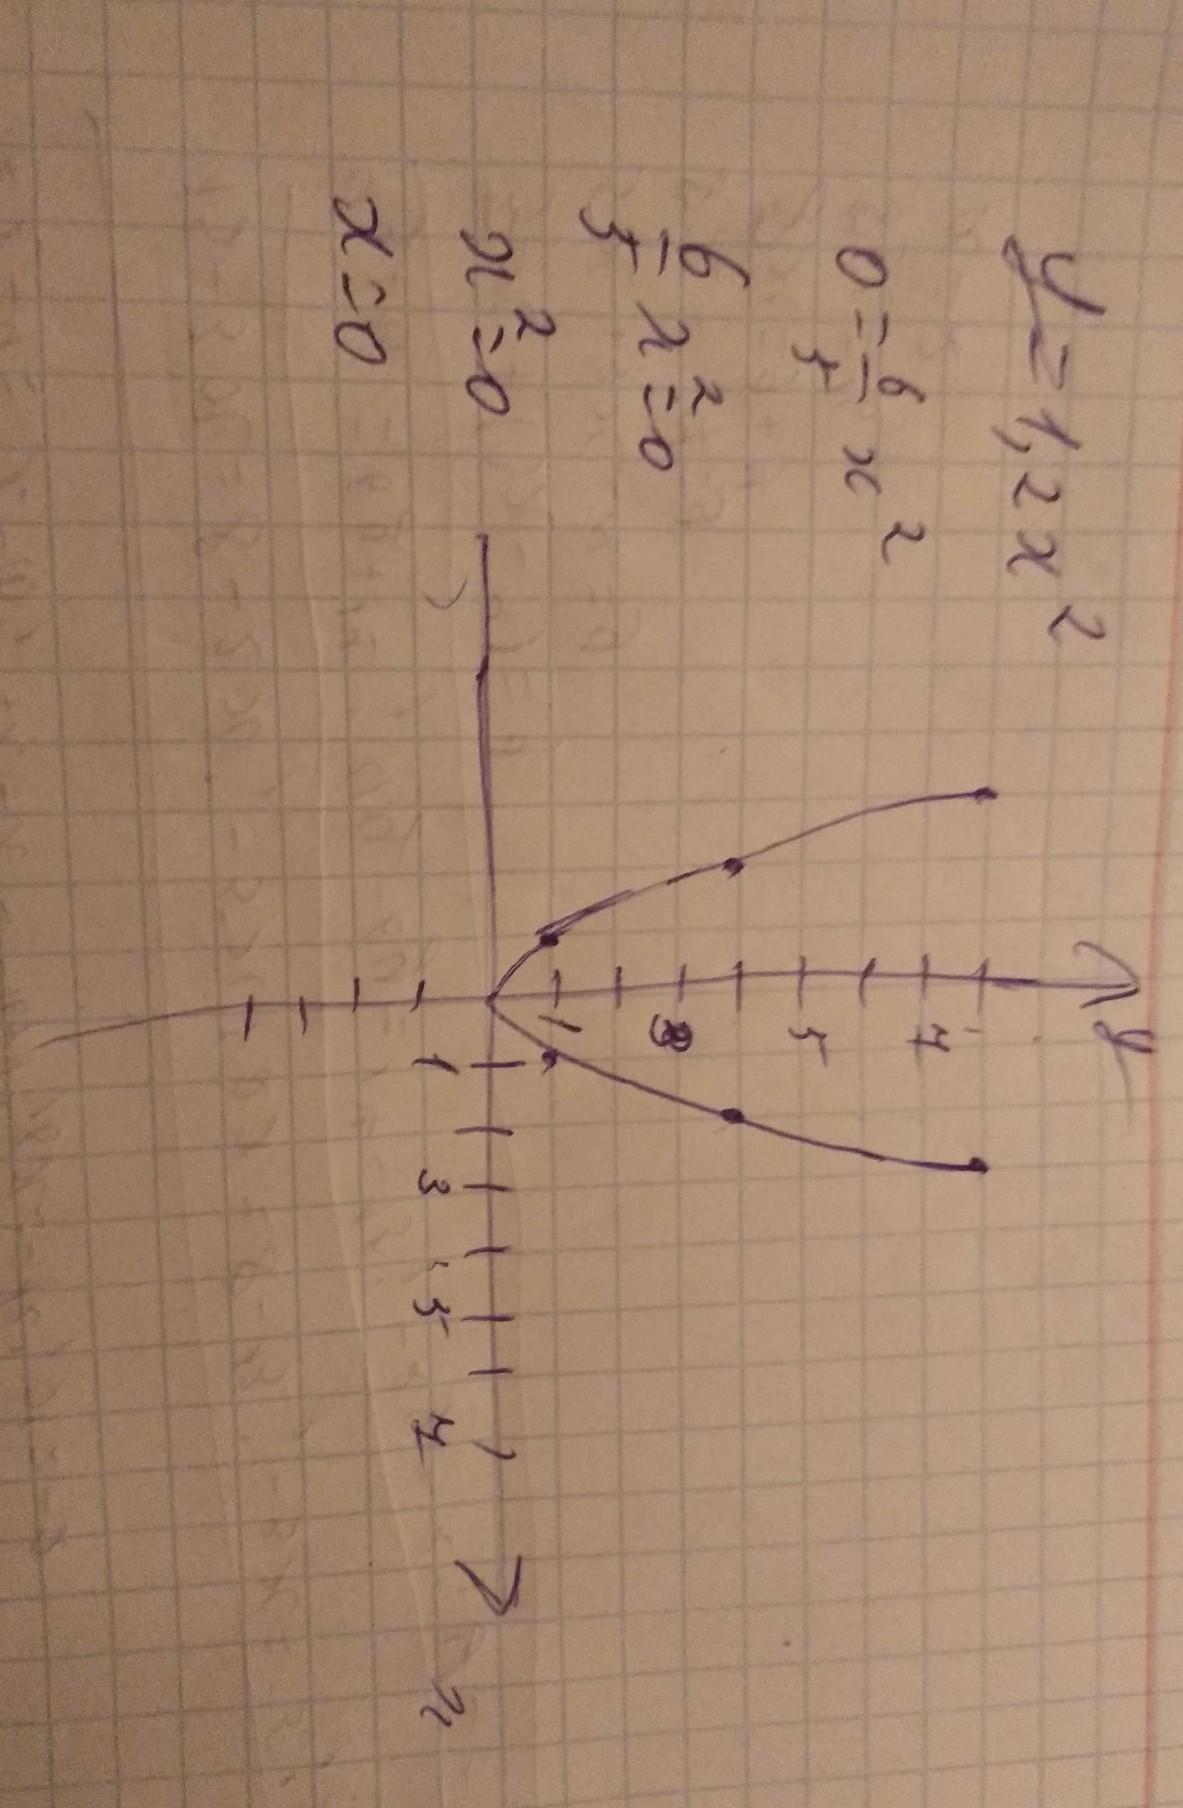 y = 1,2x²
0 = 6/5 x²
6/5 x² = 0
x² = 0
x = 0
y
7
5
3
1
1 3 5 7
x